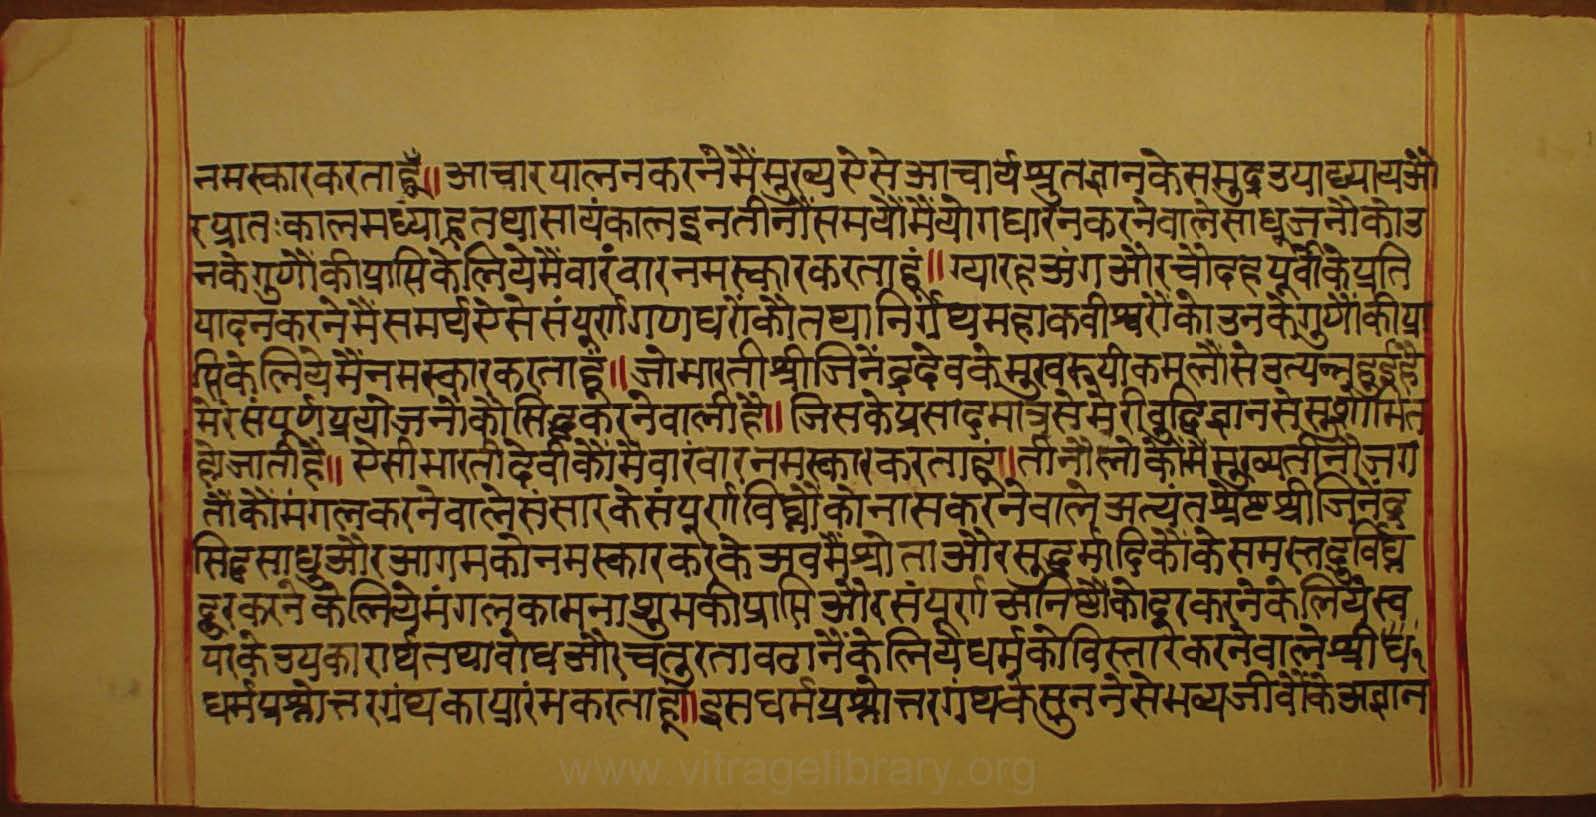 नमस्कारकरताहूँ॥आचारपालनकरनेमैंमुख्यऐसेआचार्यश्रुतज्ञानकेसमुद्रउपाध्यायऔ
रप्रातःकालमध्यांह्नतथासायंकालइनतीनौंसमयौंमैंयोगधारनकरनेवालेसाधूजनौकोउ
नकेगुणौंकीप्राप्तिकेलियेमैंवारंवारनमस्कारकरताहूं॥ग्यारहअंगऔरचौदहपूर्वोंकेप्रति
पादनकरनेमैंसमर्थऐसेसंपूर्णगणधरोंकौतथानिर्गंथमहाकवीश्वरौंकोउनकेगुणौंकीप्रा
प्तिकेलियेमैंनमस्कारकरताहूं॥जोभारतीश्रीजिनेंद्रदेवकेमुखरूपीकमलौंसेउत्पन्नहुईहै
मेरेसंपूर्णप्रयोजनोकौसिद्धकरनेवालीहै॥जिसकेप्रसादमात्रसेमेरीवुद्धिज्ञानसेसुशोभित
होजातीहै॥ऐसीभारतीदेवीकौंमैंवारंवारनमस्कारकरताहूं॥तीनौलोकौंमैंमुख्यतीनौजग
तौंकौमंगलकरनेवालेसंसारकेसंपूर्णविघ्नौंकोनासकरनेवालेअत्यंतश्रेष्टश्रीजिनेंद्र
सिद्धसाधुऔरआगमकोनमस्कारकरकेअवमैंश्रोताऔरसूद्धर्मादिकौंकेसमस्तदुर्विघ्न
दूरकरनेकेलियेमंगलकामनाशुभकीप्राप्तिऔरसंपूर्णअनिष्टौंकोदूरकरनेकेलियेस्व
परकेउपकारार्थतथावोधऔरचतुरतावढानैंकेलियेधर्मकोविस्तारकरनेवालेश्रीध
धर्मप्रश्नोत्तरग्रंथकाप्रारंभकरताहूं॥इसधर्मप्रश्नोत्तरग्रंथकेसुननेसेभव्यजीवौंकेअज्ञान
www.vitragelibrary.org